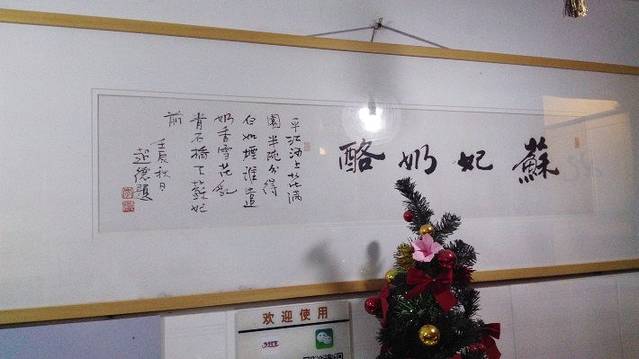 蘇妃奶酪
平江河上花滿
園半碗分得
白如煙誰道
奶香雪花亂
青石橋下蘇妃
前
壬辰秋日
超德題
欢迎使用